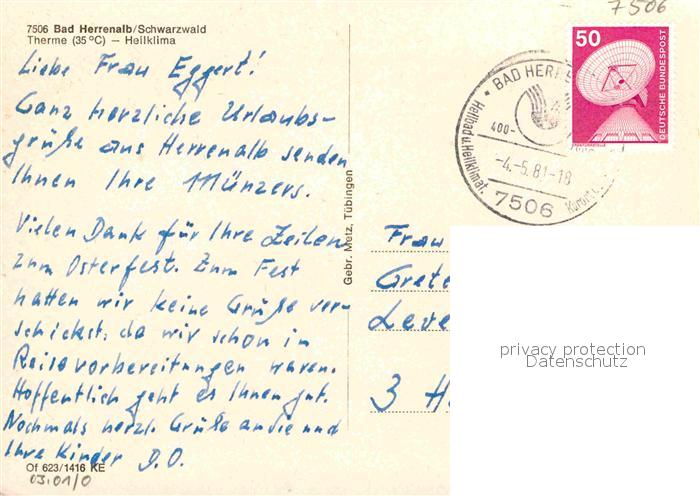 7506
7506 Bad Herrenalb/Schwarzwald
Therme (35 °C) – Heilklima
Liebe Frau Eggert!
Ganz herzliche Urlaubs-
grüße aus Herrenalb senden
Ihnen Ihre Münzers.
Vielen Dank für Ihre Zeilen
zum Osterfest. Zum Fest
hatten wir keine Grüße ver-
schickt, da wir schon in
Reisevorbereitungen waren.
Hoffentlich geht es Ihnen gut.
Nochmals herzl. Grüße an die und
Ihre Kinder D.O.
Of 623/1416 KE
03.01/0
Gebr. Metz, Tübingen
50
DEUTSCHE BUNDESPOST
BAD HERRE
400-
Heilbad u. Heilklimat.
-4.-5.81-18
7506
Kurort
Frau
Grete
Leve
3 H
privacy protection
Datenschutz